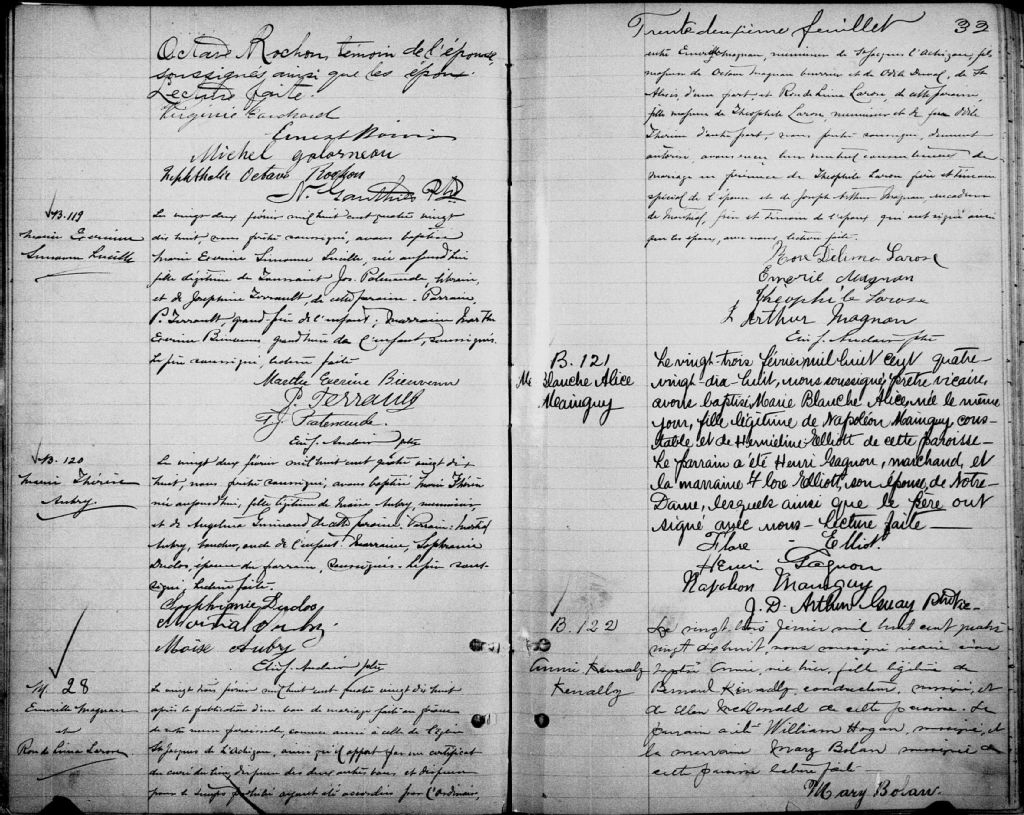 Octave Rochon, témoin de l'épouse
soussignés ainsi que les époux.
Lecture faite.
Virginie
Ernest Boivin
Michel Galarneau
Nephthalie Octave Rochon
N. Ptre
B. 119
Marie Exerine
Simonne Lucille
Le vingt deux février mil huit cent quatre vingt
dix huit, nous prêtre soussigné, avons baptisé
Marie Exerine Simonne Lucille, née aujourd'hui
fille légitime de Toussaint Jos. Patenaude, libraire,
et de Joséphine Terrault, de cette paroisse. Parrain,
P. Terrault, grand père de l'enfant; marraine Marthe
Exerine Bienvenu, grand'mère de l'enfant, soussignés.
Le père soussigné, lecture faite
Marthe Exerine Bienvenu
P. Terrault
T. J. Patenaude.
ptre
B. 120
Marie Thérèse
Aubry.
Le vingt deux février mil huit cent quatre vingt dix
huit, nous prêtre soussigné, avons baptisé Marie Thérèse
née aujourd'hui, fille légitime de Moïse Aubry, menuisier
et de Angelina de cette paroisse. Parrain:
Aubry, oncle de l'enfant. Marraine, Sophranie
Duclos, épouse du parrain, soussignés. Le père sous-
signé, lecture faite.
Duclos
Aubry
Moïse Aubry
ptre
M. 28
Magnan
et
Rose de Lima Larose
Le vingt trois février mil huit cent quatre vingt dix huit
après la publication d'un ban de mariage faite au prône
de notre messe paroissiale, comme aussi à celle de l'église
St Jacques de L'Achigan, ainsi qu'il appert par un certificat
du curé du lieu, dispense des deux autres bans, et dispense
pour le temps prohibé ayant été accordées par l'Ordinaire,
Trente deuxième feuillet 33
entre Magnan, menuisier de St Jacques L'Achigan, fils
majeur de Octave Magnan et de Odile de St
Alexis, d'une part, et Rose de Lima Larose, de cette paroisse,
fille majeure de Théophile Larose, menuisier et de feu Odile
d'autre part, nous prêtre soussigné, dûment
autorisé, avons reçu leur mutuel consentement de
mariage en présence de Théophile Larose père et témoin
spécial de l'épouse et de Joseph Arthur Magnan
de Montréal, frère et témoin de l'époux qui ont signé ainsi
que les époux, avec nous, lecture faite.
Rose Delima Larose
Emerie Magnan
Théophile Larose
J. Arthur Magnan
ptre
B. 121
M. Blanche Alice
Mainguy
Le vingt-trois février mil huit cent quatre-
vingt-dix-huit, nous soussigné, prêtre vicaire,
avons baptisé, Marie Blanche Alice, née le même
jour, fille légitime de Napoléon Mainguy, cons-
table, et de Herméline Elliott de cette paroisse—
Le parrain a été Henri Gagnon, marchand, et
la marraine Flore Elliott, son épouse, de Notre-
Dame, lesquels ainsi que le père ont
signé avec nous— Lecture faite—
Flore Elliot.
Henri Gagnon
Napoléon Mainguy
J. D. Arthur Guay Ptre
B. 122
Annie Kenally
Kenally
Le vingt trois février mil huit cent quatre
vingt dix huit, nous soussigné vicaire avons
baptisé Annie, née hier, fille légitime de
Bernard Kenally, conducteur, et
de Ellen McDonald de cette paroisse. Le
parrain a été William Hogan, et
la marraine Mary Bolan de
cette paroisse lecture faite
Mary Bolan.